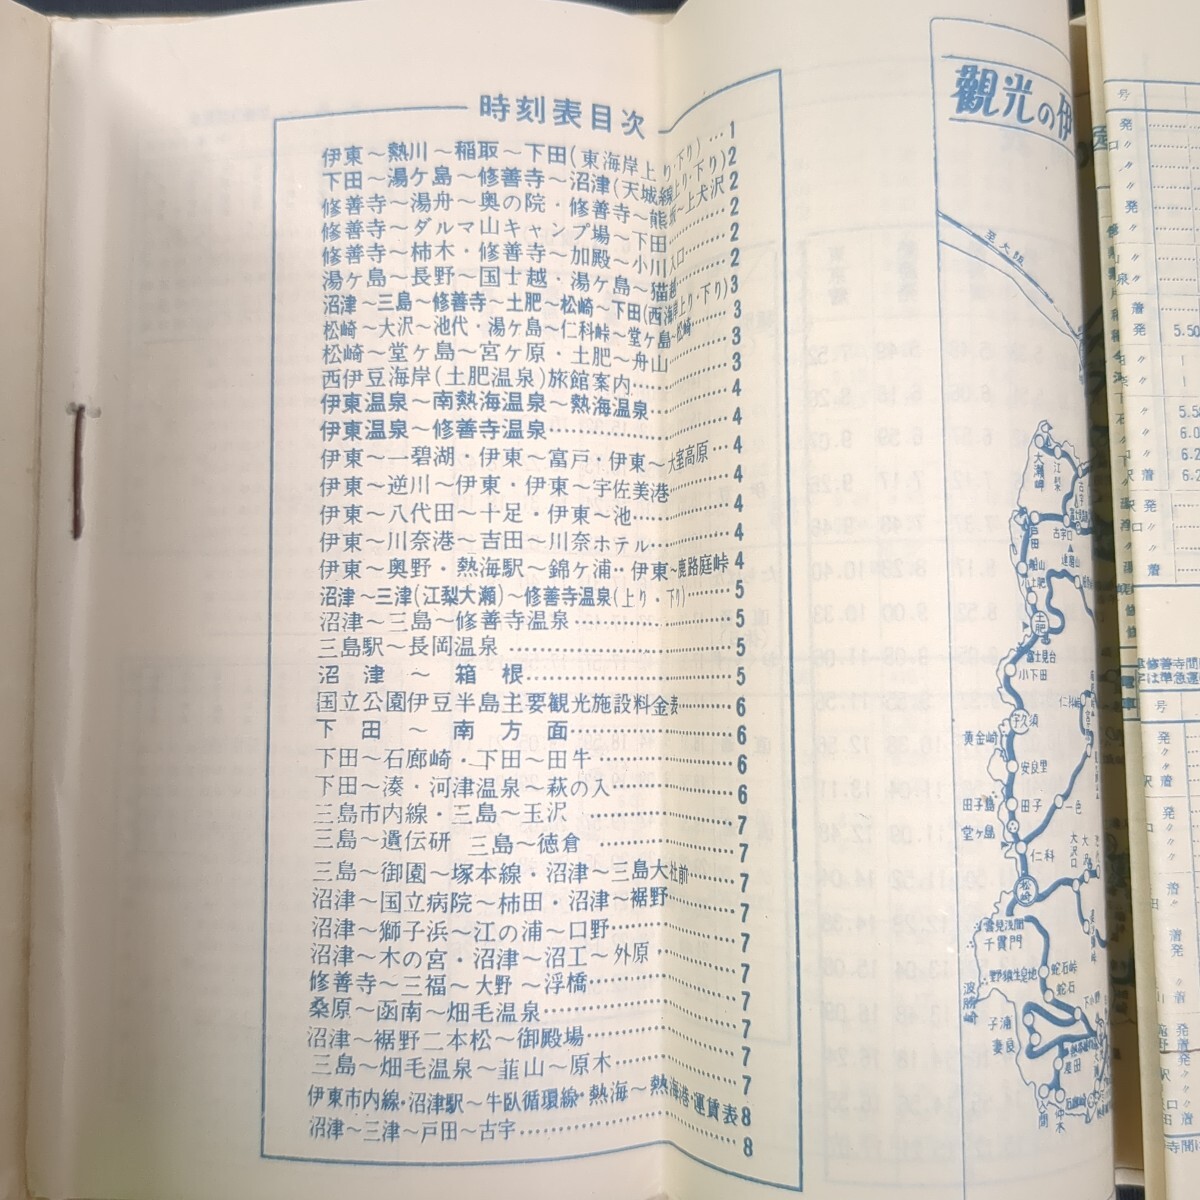 時刻表目次
伊東～熱川～稲取～下田(東海岸上り・下り)…1
下田～湯ケ島～修善寺～沼津(天城線上り・下り)2
修善寺～湯舟～奥の院・修善寺～熊坂～上犬沢 2
修善寺～ダルマ山キャンプ場～下田………2
修善寺～柿木・修善寺～加殿～小川入口……2
湯ケ島～長野～国士越・湯ケ島～猫越………2
沼津～三島～修善寺～土肥～松崎～下田(西海岸上り・下り)3
松崎～大沢～池代・湯ケ島～仁科峠～堂ケ島～松崎…3
松崎～堂ケ島～宮ケ原・土肥～舟山………3
西伊豆海岸(土肥温泉)旅館案内………3
伊東温泉～南熱海温泉～熱海温泉………4
伊東温泉～修善寺温泉………4
伊東～碧湖・伊東～富戸・伊東～大室高原…4
伊東～逆川～伊東・伊東～宇佐美港………4
伊東～八代田～十足・伊東～池………4
伊東～川奈港～吉田～川奈ホテル………4
伊東～奥野・熱海駅～錦ケ浦・伊東～鹿路庭峠 4
沼津～三津(江梨大瀬)～修善寺温泉(上り・下り)……5
沼津～三島～修善寺温泉………5
三島駅～長岡温泉………5
沼津～箱根………5
国立公園伊豆半島主要観光施設料金表…6
下田～南方面………6
下田～石廊崎・下田～田牛………6
下田～湊・河津温泉～萩の入………6
三島市内線・三島～玉沢………7
三島～遺伝研 三島～徳倉………7
三島～御園～塚本線・沼津～三島大社前……7
沼津～国立病院～柿田・沼津～裾野………7
沼津～獅子浜～江の浦～口野………7
沼津～木の宮・沼津～沼工～外原………7
修善寺～三福～大野～浮橋………7
桑原～函南～畑毛温泉………7
沼津～裾野二本松～御殿場………7
三島～畑毛温泉～韮山～原木………7
伊東市内線・沼津駅～牛臥循環線・熱海～熱海港・運賃表 8
沼津～三津～戸田～古宇………8
観光の伊
至大阪
大瀬岬
江梨
戸田
土肥
富士見台
小下田
宇久須
黄金崎
安良里
田子島
田子
一色
堂ケ島
仁科
大沢口
松崎
雲見浅間
千貫門
野猿生息地
波勝崎
蛇石峠
蛇石
子浦
妻良
差田
石廊崎
仲木